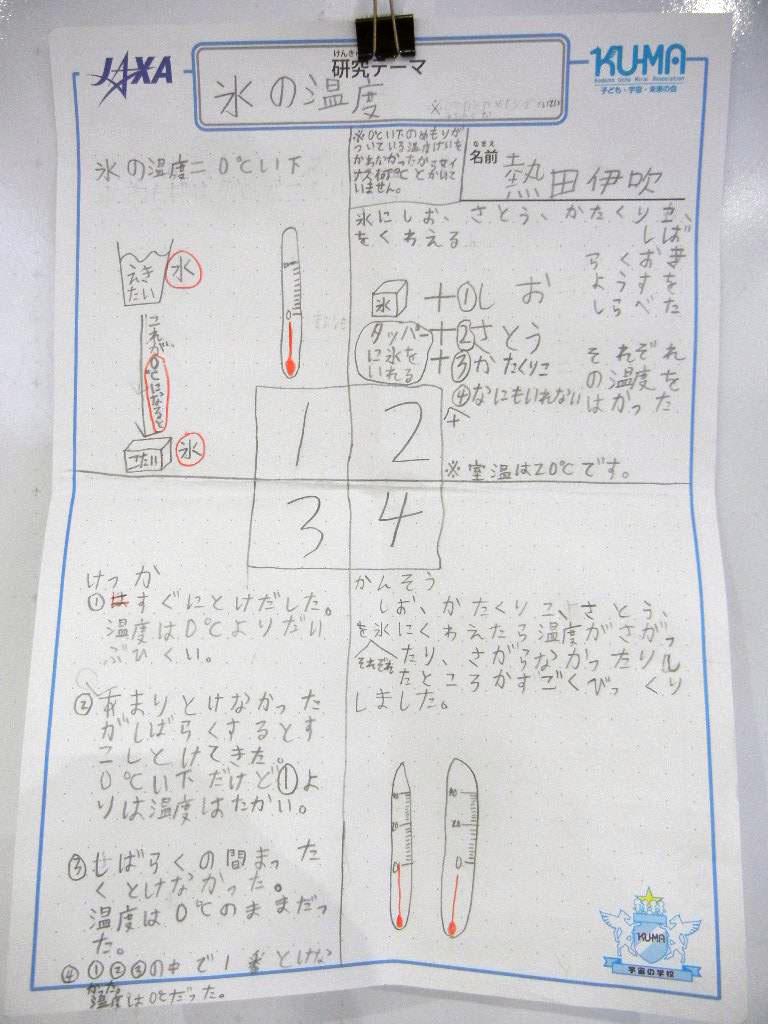 JAXA
けんきゅう
研究テーマ
氷の温度
KUMA
Kodomo Uchu Mirai Association
子ども・宇宙・未来の会
※0℃い下のめもりが
ついている温度けいを
かわなかったからマイ
ナス何℃とかいて
いません。
なまえ
名前
熱田伊吹
氷の温度=0℃い下
えき
たい
水
これが、0℃になると
こたい
氷
0
氷にしお、さとう、かたくりこ、
をくわえる
しば
らくおき
ようすを
しらべた
氷
+①しお
タッパー
に氷を
いれる
+②さとう
+③かたくりこ
④なにもいれない
それぞれ
の温度を
はかった
1
2
3
4
※室温は20℃です。
けっか
①すぐにとけだした。
温度は0℃よりだい
ぶひくい。
②あまりとけなかった
がしばらくするとす
こしとけてきた。
0℃い下だけど①よ
りは温度はたかい。
③しばらくの間まった
くとけなかった。
温度は0℃のままだっ
た。
④①②③の中で1番とけな
かった。
温度は0℃だった。
かんそう
しお、かたくりこ、さとう、
を氷にくわえたら温度がさがっ
それぞれ
たり、さがらなかったりし
たところがすごくびっくり
しました。
40
20
0
40
20
0
KUMA
宇宙の学校